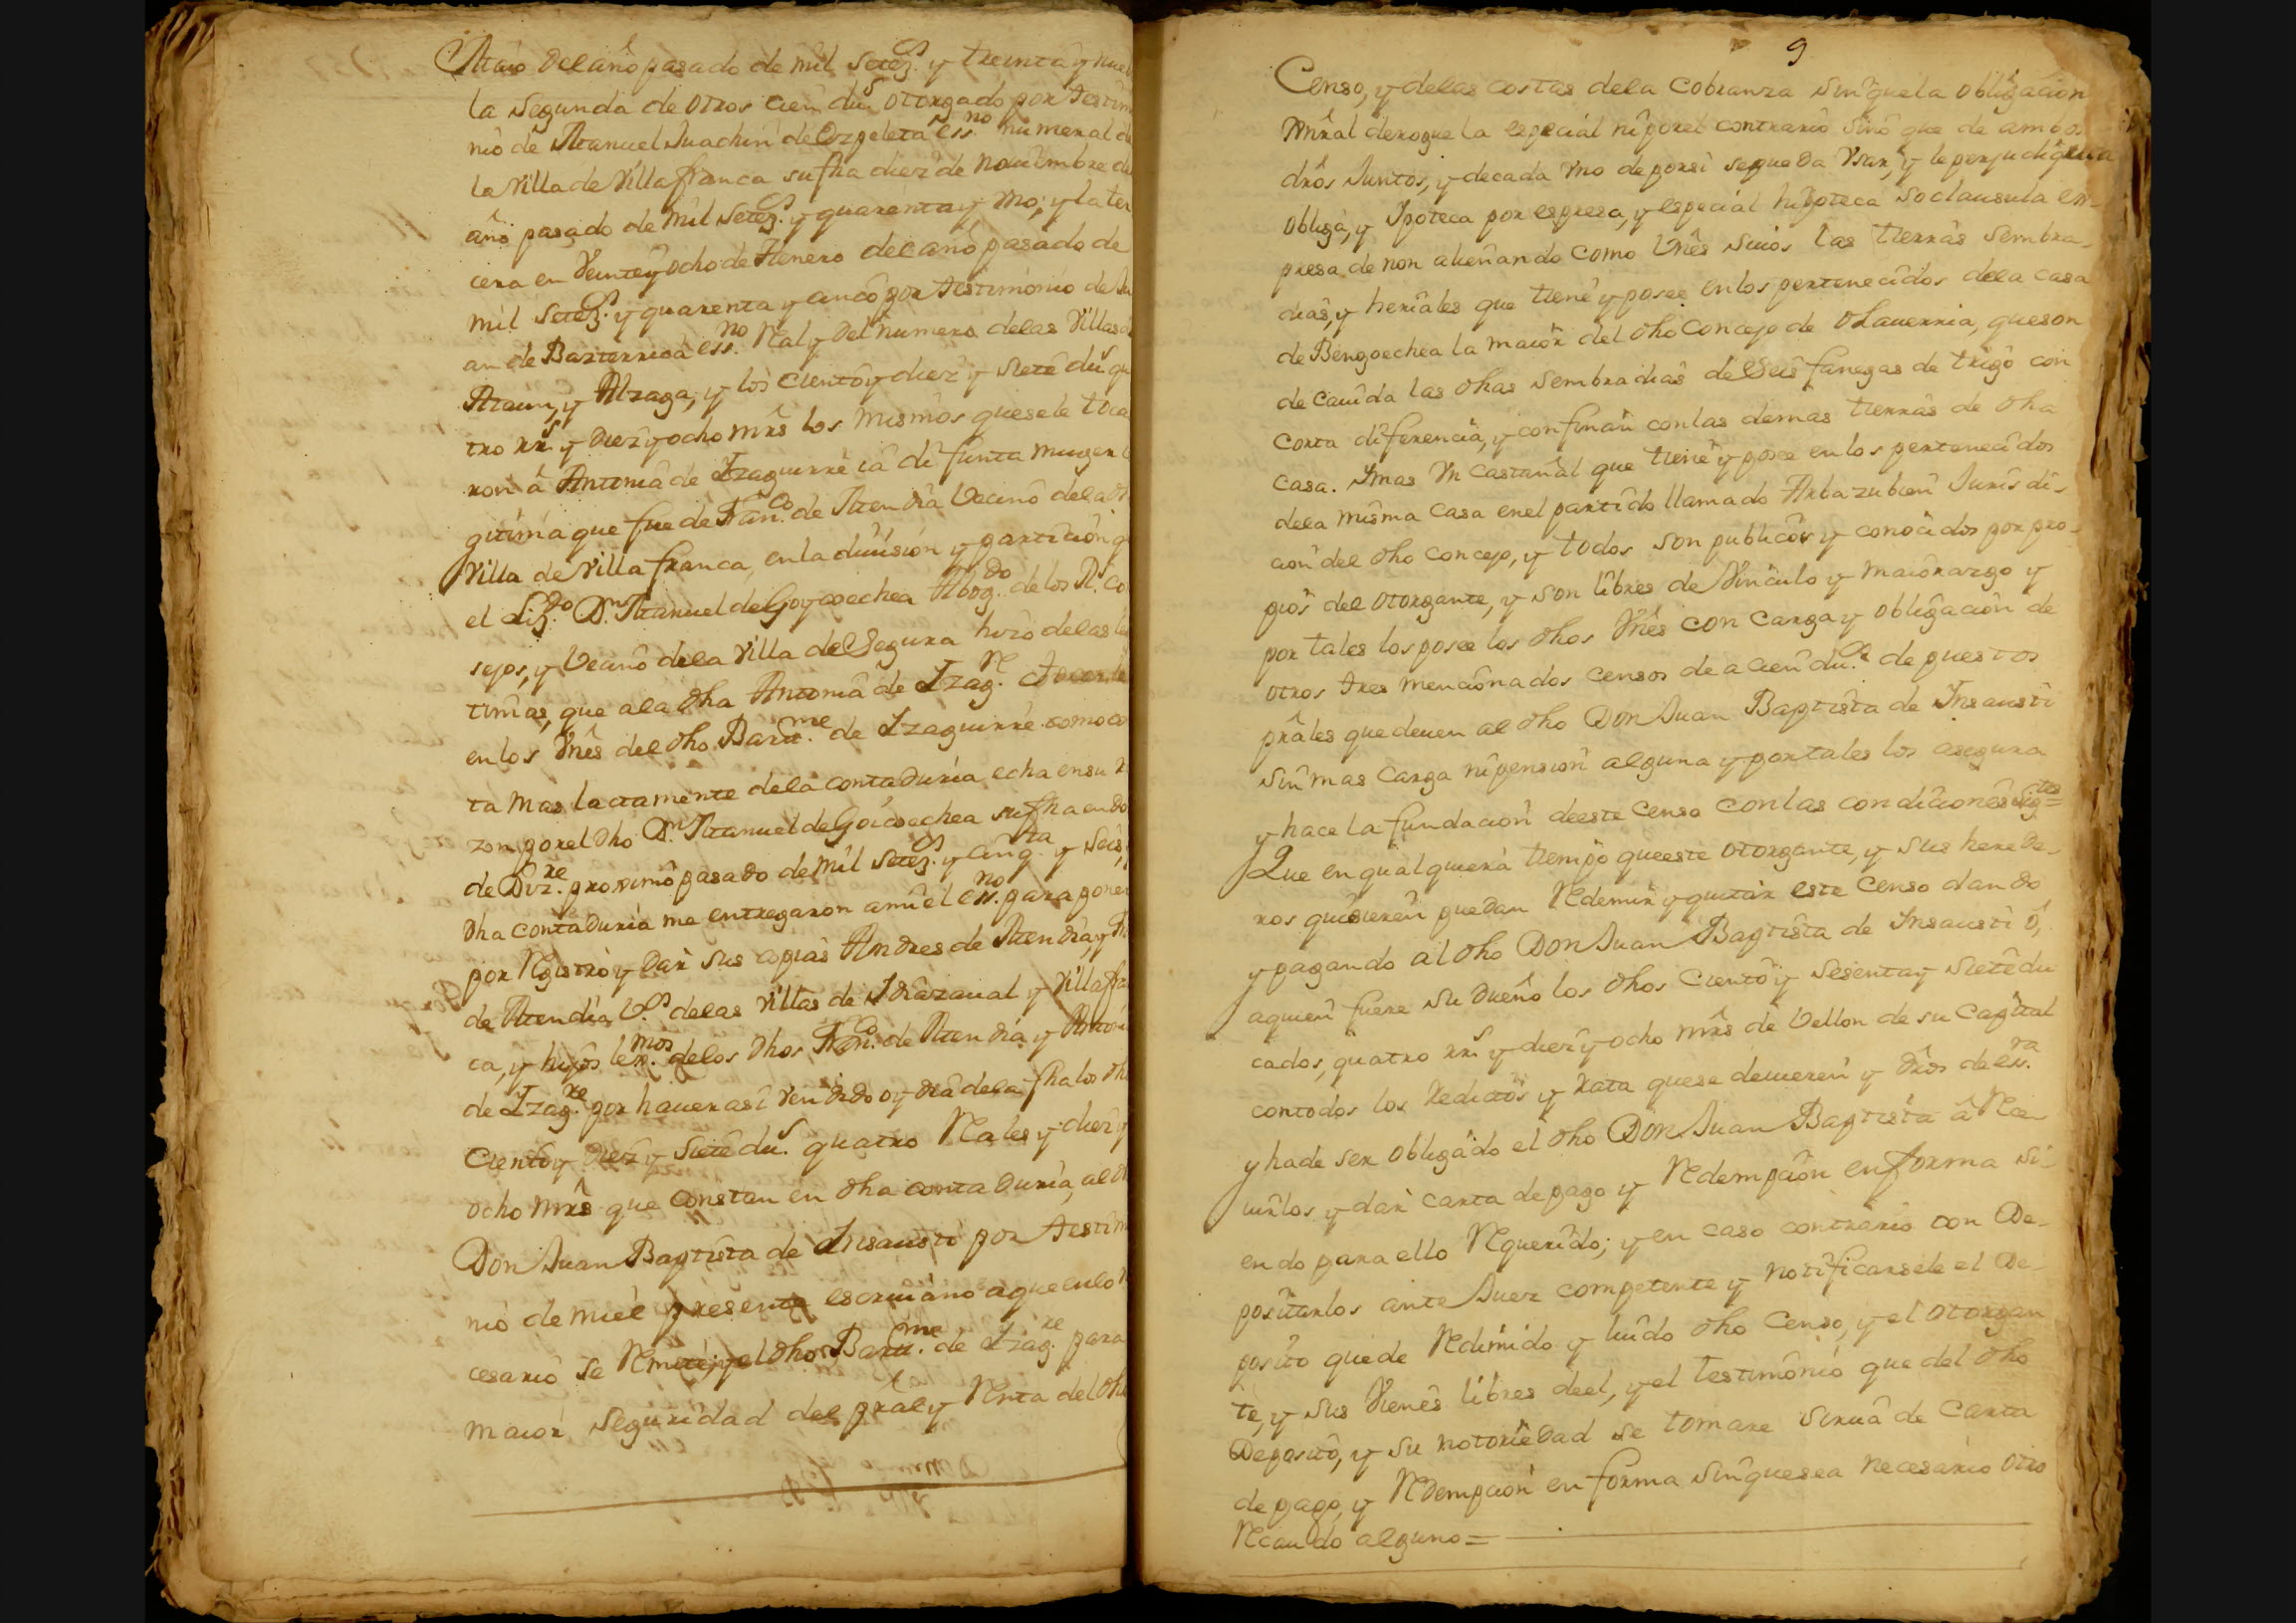 Maio del año pasado de mil setez.s y treinta y nue
la segunda de otros cien du.s otorgado por testim
nio de Manuel Juachin de Orgeleta ess.no numeral de
la Villa de Villafranca su fha diez de Nouiembre de
año pasado de mil setez.s y quarenta y vno; y la ter
cera en Veinte y ocho de Henero del año pasado de
mil setez.s y quarenta y cinco por testimonio de Ju
an de Barrenioa ess.no Real y del numero de las Villas d
Ataun, y Alzaga, y los ciento y diez y siete du.s qu
tro rr.s y diez y ocho mrs los mismos que se le toca
ron â Antonia de Izaguirre ia difunta muger le
gitima que fue de Fran.co de Mendia Vecino de la dh
Villa de Villafranca, en la diuision y particion q
el Liz.do D.n Manuel de Goycoechea Abog.do de los R.s Co
sejos, y Vecino de la Villa de Segura hizo de las le
timas, que a la dha Antonia de Izag.re
en los Vnes del dho Bartt.me de Izaguirre como co
ta mas lactamente de la contaduria echa en su r
zon por el dho D.n Manuel de Goicoechea su fha en do
de Diz.re proximo pasado de mil setez.s y cinq.ta y seis,
dha contaduria me entregaron a mi el ess.no para poner
por Registro y dar sus copias Andres de Mendia, y
de Mendia V.os de las Villas de Idiazaual y Villafran
ca, y hijos lex.mos de los dhos Fran.co de Mendia y Antoni
de Izag.re por hauer asi Vendido oy dia de la fha los dh
Ciento y diez y siete du.s quatro Reales y diez y
ocho mrs que constan en dha contaduria, al dh
Don Juan Baptista de Insausti por testim
nio de mi el presente escriuano a que en lo n
cesario se Remite; y el dho Bartt.me de Izag.re para
maior seguridad del pral y Renta del dho
9
Censo, y de las costas de la cobranza sin que la obligacion
Gnral derogue la especial ni por el contrario sino que de ambos
dros Juntos, y de cada vno de por si se pueda Vsar, y le perjudique
obliga, y Ipoteca por espresa, y especial hipoteca so clausula ex-
presa de non alienando como Vnes suios las tierras sembra-
dias, y heriales que tiene y posee en los pertenecidos de la casa
de Bengoechea la maior del dho Concejo de Olauerria, que son
de cauida las dhas sembradias de Seis fanegas de trigo con
corta diferencia, y confinan con las demas tierras de dha
casa. Imas Vn Castañal que tiene y posee en los pertenecidos
de la misma casa en el partido llamado Arbazubien Jurisdi-
cion del dho concejo, y todos son publicos y conocidos por pro-
pios del otorgante, y son libres de Vinculo y maiorazgo y
por tales los posee los dhos Vnes con Carga y obligacion de
otros tres mencionados censos de a cien du.s de puestos
prales que deuen al dho Don Juan Baptista de Insausti
sin mas Carga ni pension alguna y por tales los asegura
y hace la fundacion de este Censo con las condiciones sig.tes =
Que en qualquiera tiempo que este otorgante, y sus herede-
ros quisieren puedan Redemir y quitar este Censo dando
y pagando al dho Don Juan Baptista de Insausti ô,
aquien fuere su dueño los dhos Ciento y sesenta y siete du
cados, quatro rr.s y diez y ocho mrs de Vellon de su Capital
con todos los reditos y rata que se deuieren y dros de ess.ra
y ha de ser obligado el dho Don Juan Baptista â Re-
uirlos y dar carta de pago y Redempcion en forma si-
endo para ello Requerido; y en caso contrario con De-
positarlos ante Juez competente y notificarsele el De-
posito quede Redimido y luido dho Censo, y el otorgan
te, y sus Vienes libres de el, y el testimonio que del dho
Deposito, y su notoriedad se tomare sirua de Carta
de pago, y Redempcion en forma sin que sea necesario otro
Recaudo alguno =